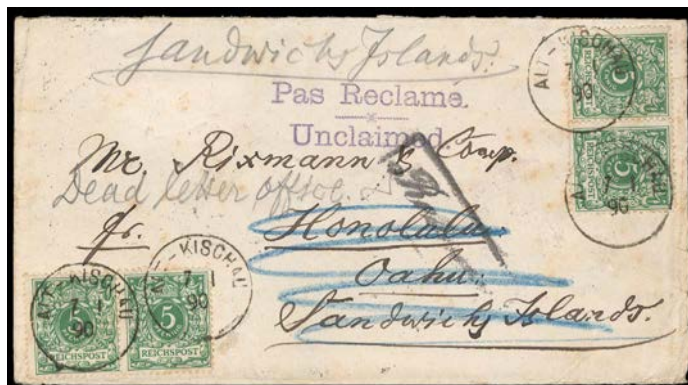 Sandwichs Islands.
Pas Reclamé.
Unclaimed
Mr. Rixmann & Comp.
Dead letter office.
fr.
Honolulu.
Oahu.
Sandwichs Islands.
ALT-KISCHAU
7 1
90
5
5
ALT-KISCHAU
7 1
90
ALT-KISCHAU
7 1
90
5
REICHSPOST
ALT-KISCHAU
7 1
90
5
REICHSPOST